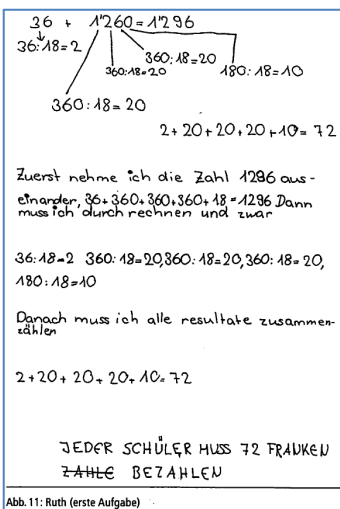 36 + 1'260 = 1'296
36:18=2
360:18=20
360:18=20
180:18=10
360:18=20
2+20+20+20+10=72
Zuerst nehme ich die Zahl 1296 aus-
einander, 36+360+360+360+18=1296 Dann
muss ich durch rechnen und zwar
36:18=2 360:18=20, 360:18=20, 360:18=20,
180:18=10
Danach muss ich alle resultate zusammen-
zählen
2+20+20+20+10=72
JEDER SCHÜLER MUSS 72 FRANKEN
ZAHLE BEZAHLEN
Abb. 11: Ruth (erste Aufgabe)